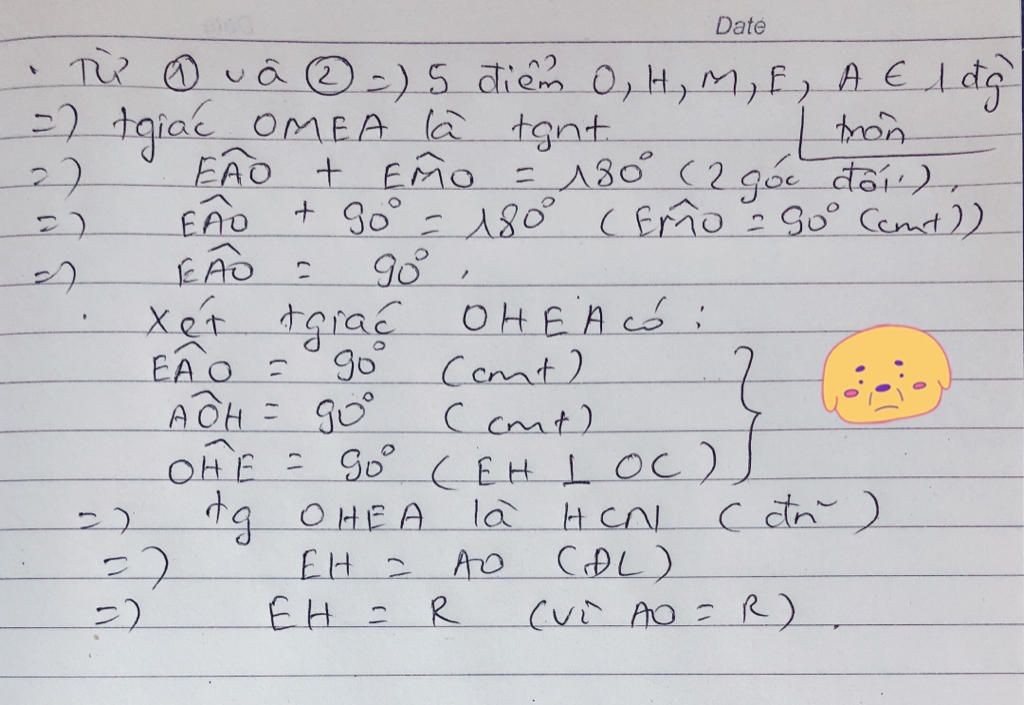 Date
. Từ ① và ② =) 5 điểm O, H, M, E, A ∈ 1 đg
tròn
=) tgiác OMEA là tgnt
=) EÂO + EM̂O = 180° (2 góc đối).
=) EÂO + 90° = 180° (EM̂O = 90° (cmt))
=) EÂO = 90°.
. Xét tgiác OHEA có :
EÂO = 90° (cmt)
AÔH = 90° (cmt)
OĤE = 90° (EH ⊥ OC)
=) tg OHEA là HCN (đn)
=) EH = AO (ĐL)
=) EH = R (vì AO = R).